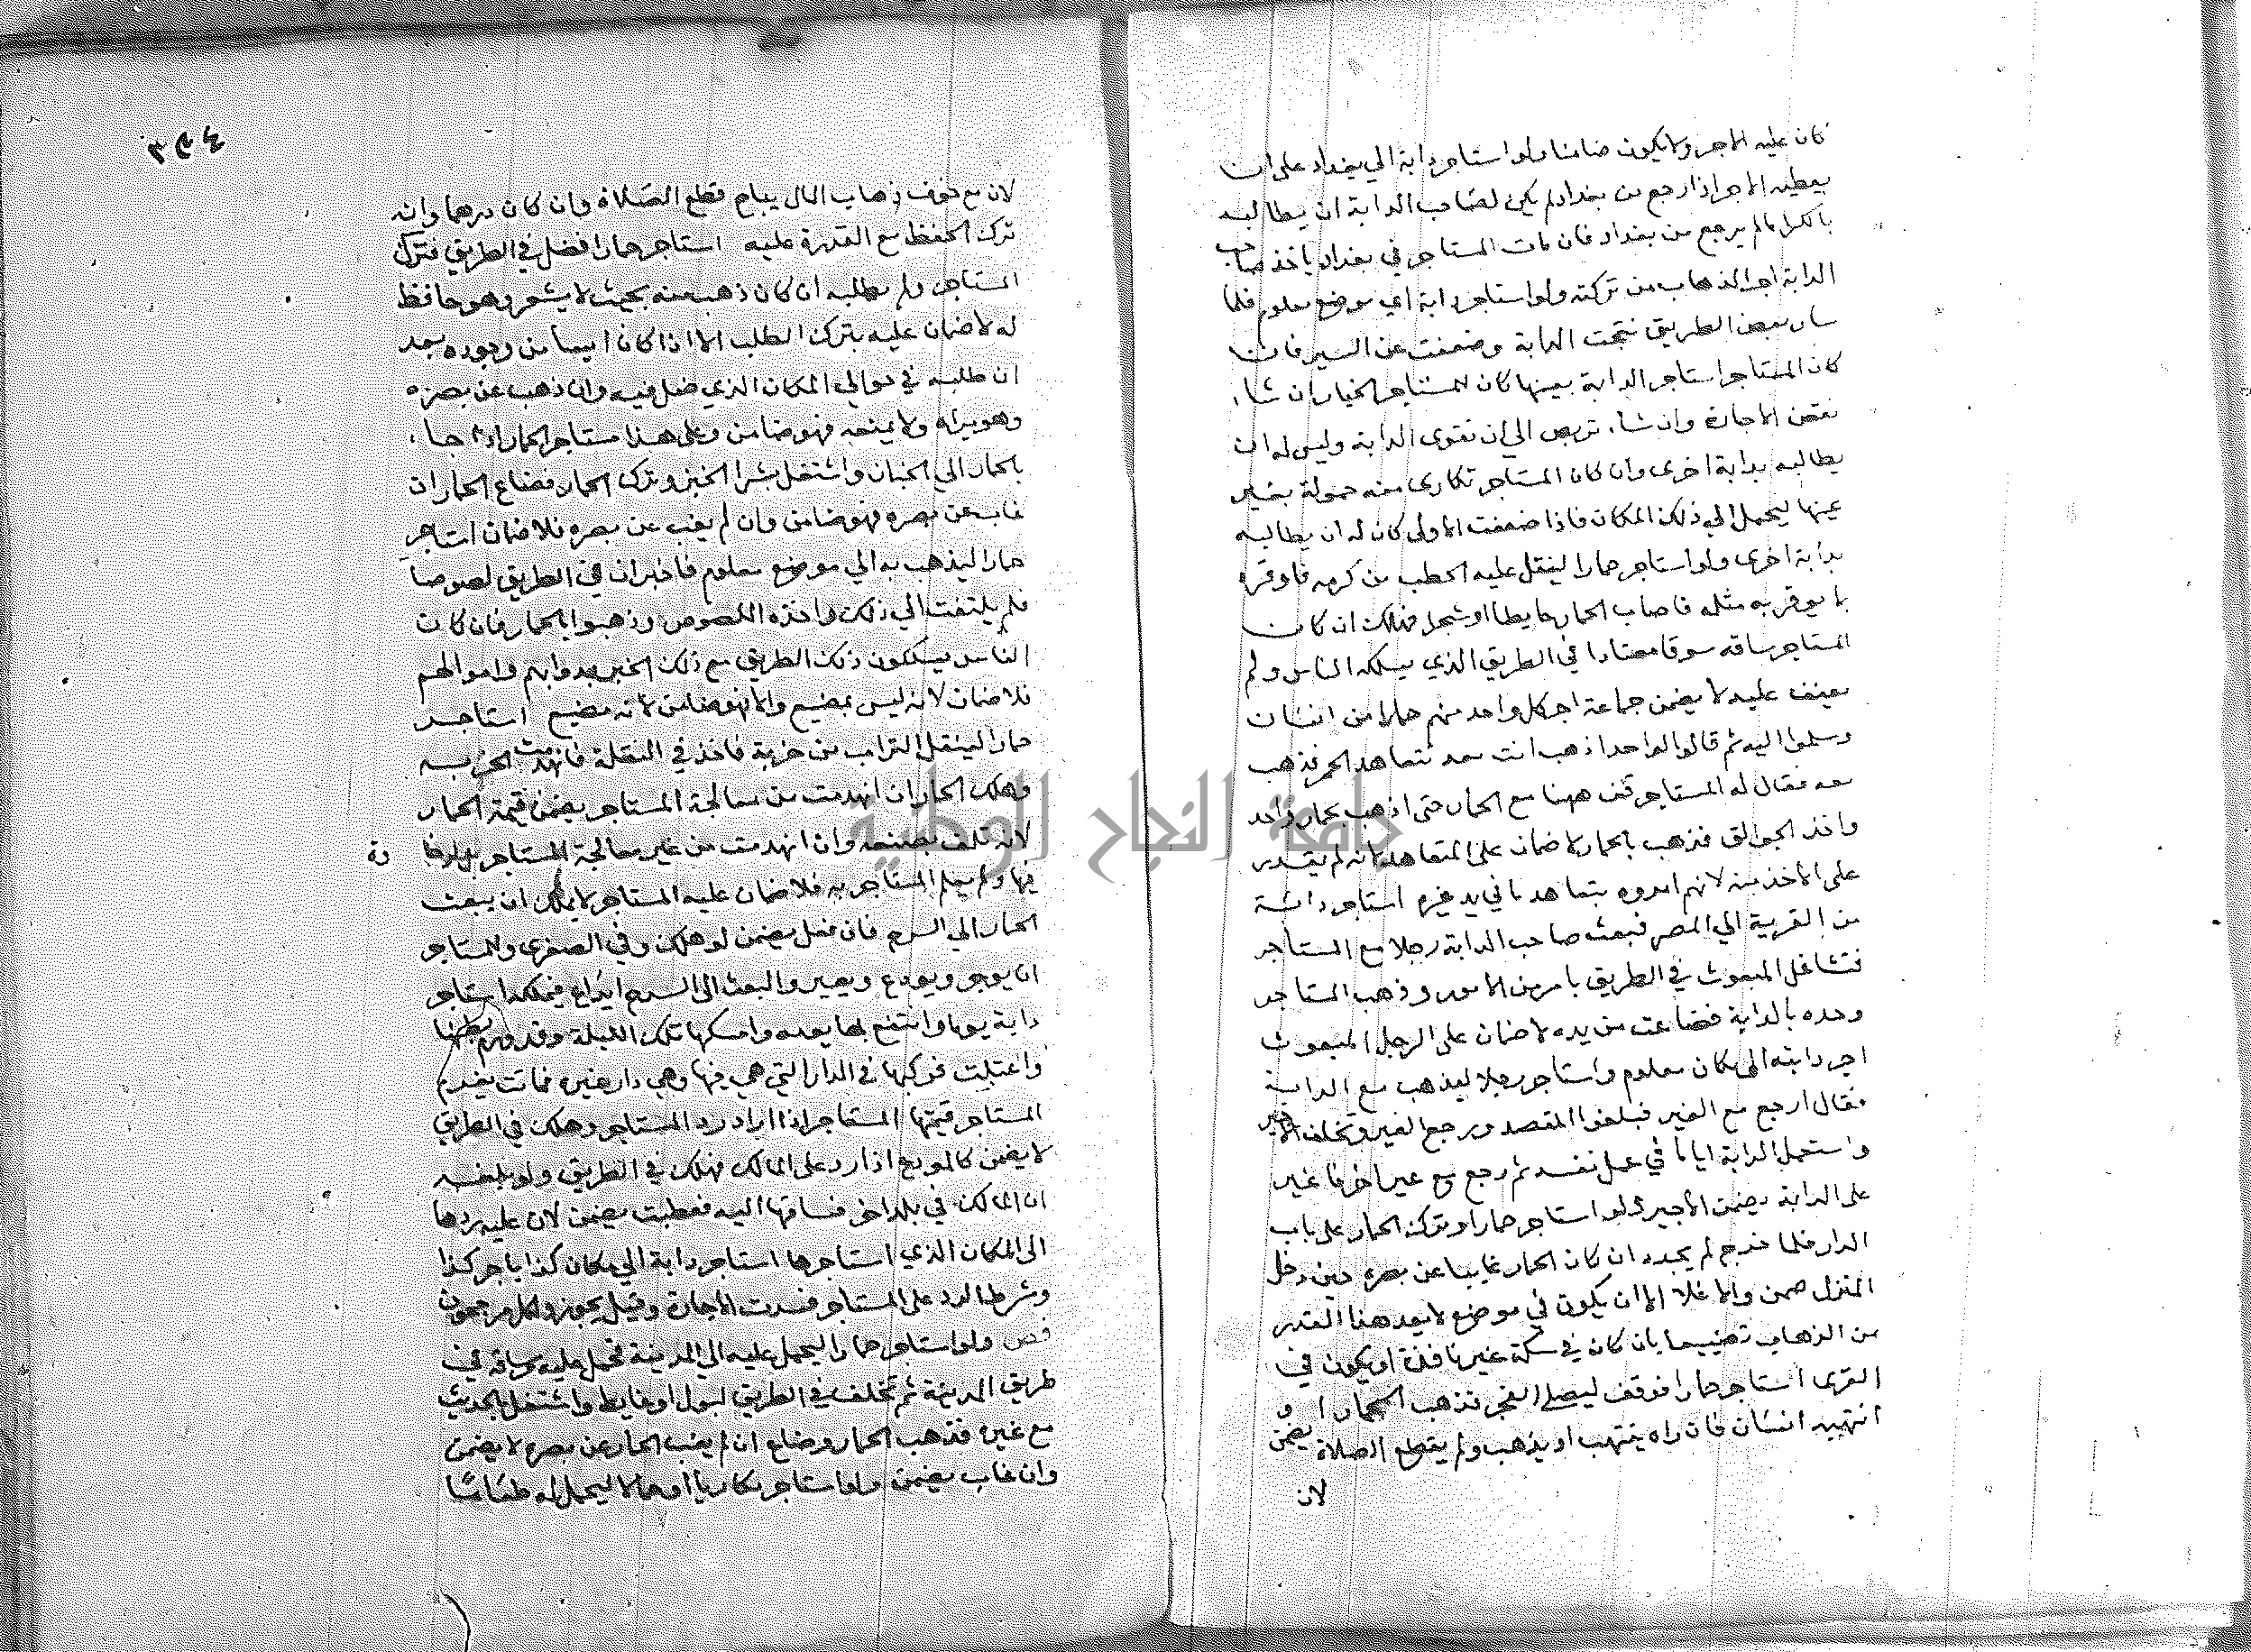 كان عليه الاجر ولا يكون ضامنا ولو استاجر دابة الي بغداد على ان
يعطيه الاجر اذا رجع من بغداد لم يكن لصاحب الدابة ان يطالبه
بالكرا ما لم يرجع من بغداد فان مات المستاجر في بغداد ياخذ صاحب
الدابة اجر الذهاب من تركته ولو استاجر دابة الي موضع معلوم فلما
سار بعض الطريق نتجت الدابة وضعفت عن السير فان
كان المستاجر استاجر الدابة بعينها كان للمستاجر الخيار ان شاء
نقض الاجارة وان شاء تربص الي ان تقوى الدابة وليس له ان
يطالبه بدابة اخرى وان كان المستاجر تكارى منه حمولة بغير
عينها ليحمل الي ذلك المكان فاذا ضعفت الاولى كان له ان يطالبه
بدابة اخرى ولو استاجر حمارا لينقل عليه الحطب من كرمه فاوقره
بما يوقر به مثله فاصاب الحمار حايطا او شجرا فهلك ان كان
المستاجر ساقه سوقا معتادا في الطريق الذي يسلكه الناس ولم
يعنف عليه لا يضمن جماعة اجر كل واحد منهم حمارا من انسان
وسلموا اليه ثم قالوا لواحد اذهب انت معه تتعاهد الحمر فذهب
معه فقال له المستاجر قف ههنا مع الحمار حتى اذهب بحمار واحد
واخذ الجوالق فذهب بالحمار لا ضمان على المتعاهد لانه لم يقدر
على الاخذ منه لانهم امروه بتعاهد ما في يد غيره استاجر دابة
من القرية الي المصر فبعث صاحب الدابة رجلا مع المستاجر
فتشاغل المبعوث في الطريق بامر من الامور وذهب المستاجر
وحده بالدابة فضاعت من يده لا ضمان على الرجل المبعوث
اجر دابته الى مكان معلوم واستاجر رجلا ليذهب مع الدابة
فقال ارجع مع العير فبلغوا المقصد ورجع العير وتخلف الاجير
واستعمل الدابة اياما في عمل نفسه ثم رجع مع عير اخر فاغير
على الدابة يضمن الاجير ولو استاجر حمارا وترك الحمار على باب
الدار فلما خرج لم يجده ان كان الحمار غايبا عن بصره حين دخل
المنزل ضمن والا فلا الا ان يكون في موضع لا يعد هذا القدر
من الذهاب تضييعا بان كان في سكة غير نافذة او يكون في
القرى استاجر حمارا فوقف ليصلي الفجر فذهب الحمار او
انتهبه انسان فان راه ينتهب او يذهب ولم يقطع الصلاة يضمن
لان
لان مع خوف ذهاب المال يباح قطع الصلاة وان كان درهما وانه
ترك الحفظ مع القدرة عليه استاجر حمارا فضل في الطريق فترك
المستاجر ولم يطلبه ان كان ذهب منه بحيث لا يشعر وهو حافظ
له لا ضمان عليه بترك الطلب الا اذا كان ايسا من وجوده بعد
ان طلبه في حوالي المكان الذي ضل فيه وان ذهب عن بصره
وهو يراه ولا يمنعه فهو ضامن وعلى هذا مستاجر الحمار اذا جاء
بالحمار الي الخباز واشتغل بشرا الخبز وترك الحمار فضاع الحمار ان
غاب عن بصره فهو ضامن وان لم يغب عن بصره فلا ضمان استاجر
حمارا ليذهب به الي موضع معلوم فاخبر ان في الطريق لصوصا
فلم يلتفت الي ذلك واخذه اللصوص وذهبوا بالحمار فان كان
الناس يسلكون ذلك الطريق مع ذلك الخبر بدوابهم واموالهم
فلا ضمان لانه ليس بمضيع والا فهو ضامن لانه مضيع استاجر
حمارا لينقل التراب من خربة فاخذ في النقلة فانهدمت الخربه
وهلك الحمار ان انهدمت من معالجة المستاجر يضمن قيمة الحمار
لانه تلف بصنعه وان انهدمت من غير معالجة المستاجر بل لرخا
وة
فيها ولم يعلم المستاجر به فلا ضمان عليه المستاجر لا يملك ان يبعث
الحمار الي السرح فان فعل يضمن لو هلك وفي الصغرى وللمستاجر
ان يوجر ويودع ويعير والبعث الى السرح ايداع فيملكه استاجر
دابة يوما وانتفع بها يومه وامسكها تلك الليلة وقد ورم بطنها
واعتلت فتركها في الدار التي هي فيها وهي دار غيره فماتت يغرم
المستاجر قيمتها المستاجر اذا اراد رد المستاجر وهلك في الطريق
لا يضمن كالمودع اذا رد على المالك فهلك في الطريق ولو بلغه
ان المالك في بلد اخر فساقها اليه فعطبت يضمن لان عليه ردها
الى المكان الذي استاجرها استاجر دابة الي مكان كذا باجر كذا
وشرط الرد على المستاجر فسدت الاجارة وقيل يجوز
ولو استاجر حمارا ليحمل عليه الي المدينة فحمل عليه وساقه في
طريق المدينة ثم تخلف في الطريق لبول او غايط واشتغل بالحديث
مع غيره فذهب الحمار وضاع ان لم يغب الحمار عن بصره لا يضمن
وان غاب يضمن ولو استاجر مكاريا او حمالا ليحمل له